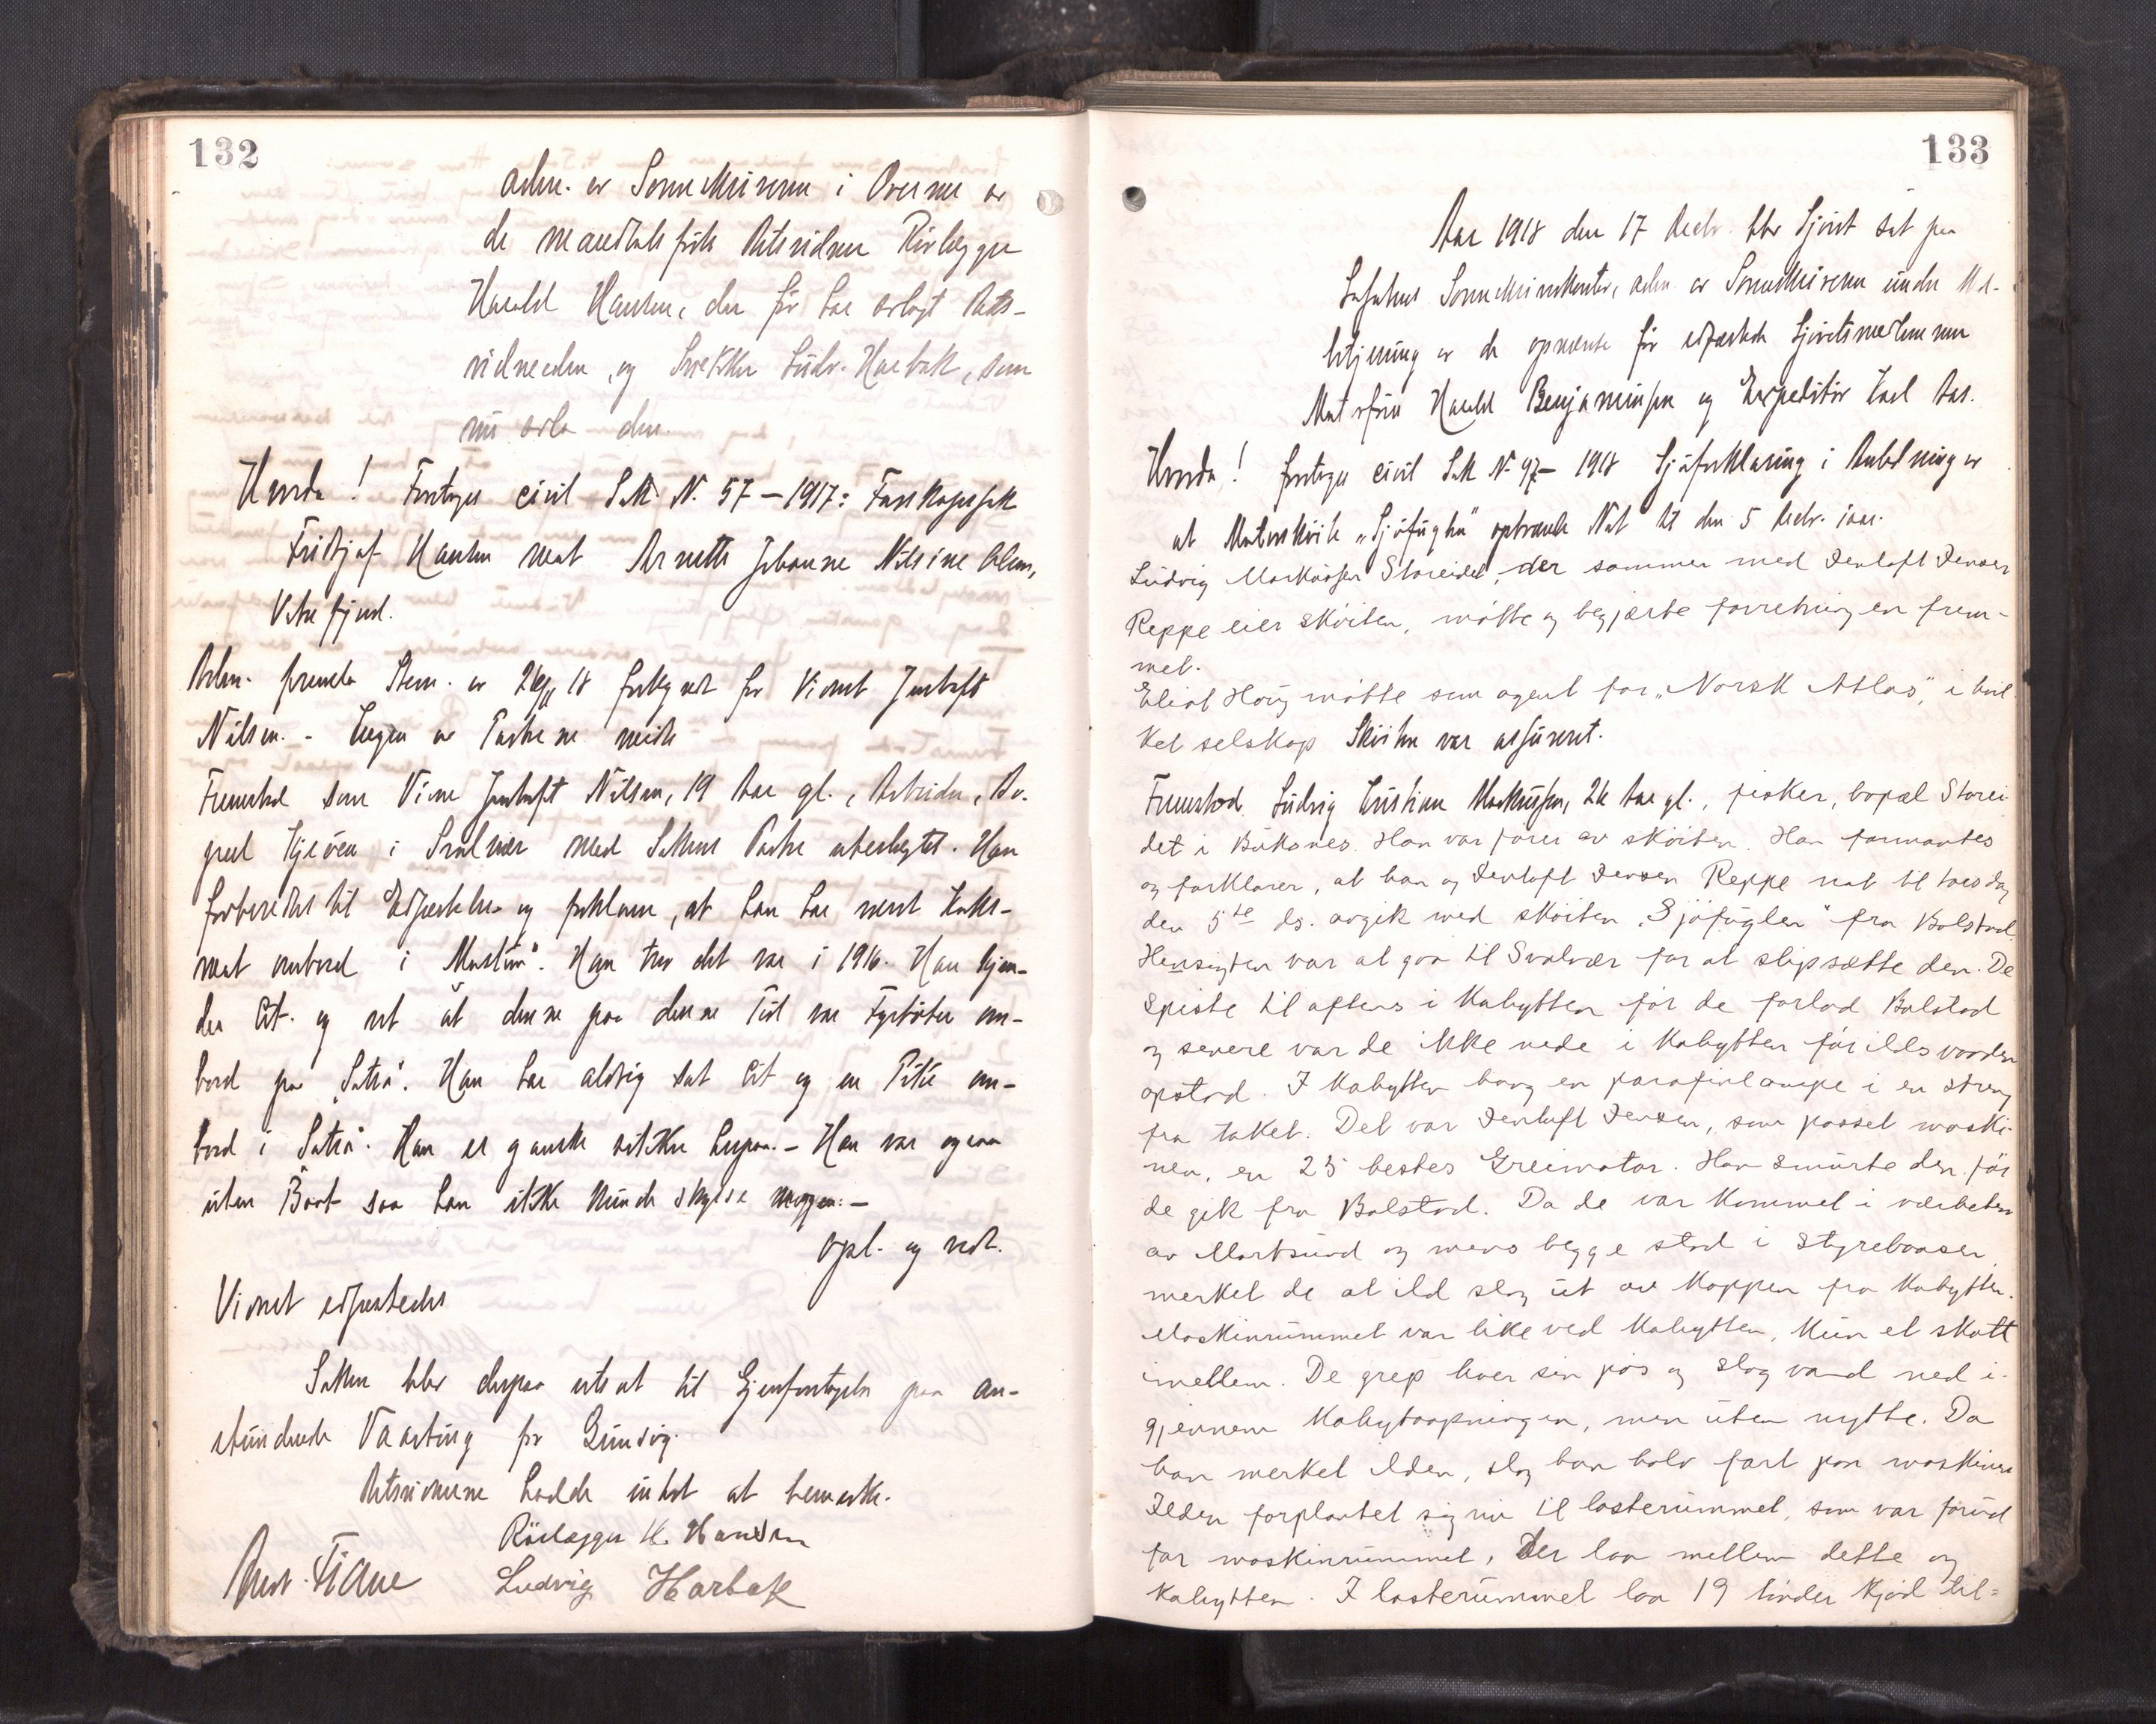 132
adm. av Sorenskriveren i Overvær av
de mandtalsførte Retsvidner Rørlægger
Harald Hansen, der før har avlagt Rets-
vidneeden, og Snekker Ludv. Harbak, som
nu avla den.
Hvorda! Foretoges civil Sak N. 57 – 1917: Farskapssak
Fridtjof Hansen mot Arnette Johanne Nilsine Olsen,
Vestrefjord.
Adm. fremla Stevn. av 26/11 18 forkyndt for Vidnet Jentoft
Nilsen. – Ingen av Parterne møtte
Fremstod som Vidne Jentoft Nilsen, 19 Aar gl., Arbeider, Bo-
pæl Kjeøen i Svolvær med Sakens Parter ubeslegtet. Han
forberedtes til Edfæstelse og forklarer, at han har været Koks-
mat ombord i . Han tror det var i 1916. Han kjen-
der Cit. og vet at denne paa denne Tid var Fyrbøter om-
bord paa „Satra". Han har aldrig set Cit og en Pike om-
bord i „Satra". Han er ganske sikker herpaa. – Han var ogsaa
uten Baat saa han ikke kunde skysse nogen. –
opl. og vedt.
Vidnet edfæstedes
Saken blev derpaa utsat til Gjenforetagelse paa an-
stundende Vaarting for Gimsøy.
Retsvidnerne hadde intet at bemerke.
Rörlægger H. Hansen
Ludvig Harbak
133
Aar 1918 den 17 Decbr. blev Sjøret sat paa
Lofotens Sorenskriverkontor, adm. av Sorenskriveren under Med-
betjening av de opnævnte før edfæstede Sjøretsmedlemmer
Motorfører Harald Benjaminsen og Expeditør Karl Aas.
Hvorda! foretoges civil Sak N 97 – 1918 Sjøforklaring i Anledning av
at Motorskøite „Sjøfuglen" opbrændte Nat til den 5 Decbr. iaar.
Ludvig Markussen Storeidet, der sammen med Jentoft Jensen
Reppe eier skøiten, møtte og begjærte forretningen frem-
met.
Eliot Houg møtte som agent for „Norsk Atlas", i hvil
ket selskap Skøiten var assureret.
Fremstod Ludvig Kristian Markussen, 26 Aar gl., fisker, bopæl Storei-
det i Buksnes. Han var fører av skøiten. Han formantes
og forklarer, at han og Jentoft Jensen Reppe nat til torsdag
den 5te ds. avgik med skøiten „Sjøfuglen" fra Balstad.
Hensigten var at gaa til Svolvær for at slipsætte den. De
spiste til aftens i Kahytten før de forlod Balstad
og senere var de ikke nede i Kahytten før ildsvaaden
opstod. I Kahytten hang en parafinlampe i en streng
fra taket. Det var Jentoft Jensen, som passet maski-
nen, en 25 hestes Greimotor. Han smurte den før
de gik fra Balstad. Da de var kommet i nærheten
av Mortsund og mens begge stod i styrehuset
merket de at ild slog ut av kappen fra kahytten.
Maskinrummet var like ved kahytten, kun et skott
imellem. De grep hver sin pøs og slog vand ned i-
gjennem kahytsaapningen, men uten nytte. Da
han merket ilden, slog han halv fart paa maskinen
Ilden forplantet sig nu til lasterummet, som var forut
for maskinrummet, der laa mellem dette og
kahytten. I lasterummet laa 19 tønder kjød til=